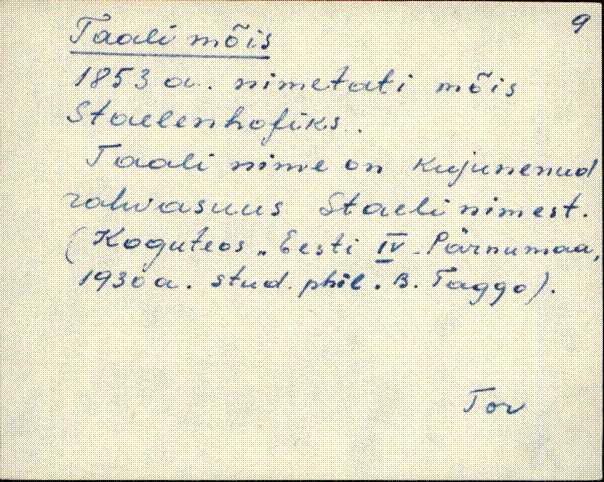 9
Taali mõis
1853 a. nimetati mõis
Staelenhofiks.
Taali nime on kujunenud
rahvasuus Staeli nimest.
(Koguteos „Eesti IV - Pärnumaa,
1930 a. stud. phil. B. Taggo).
Tor